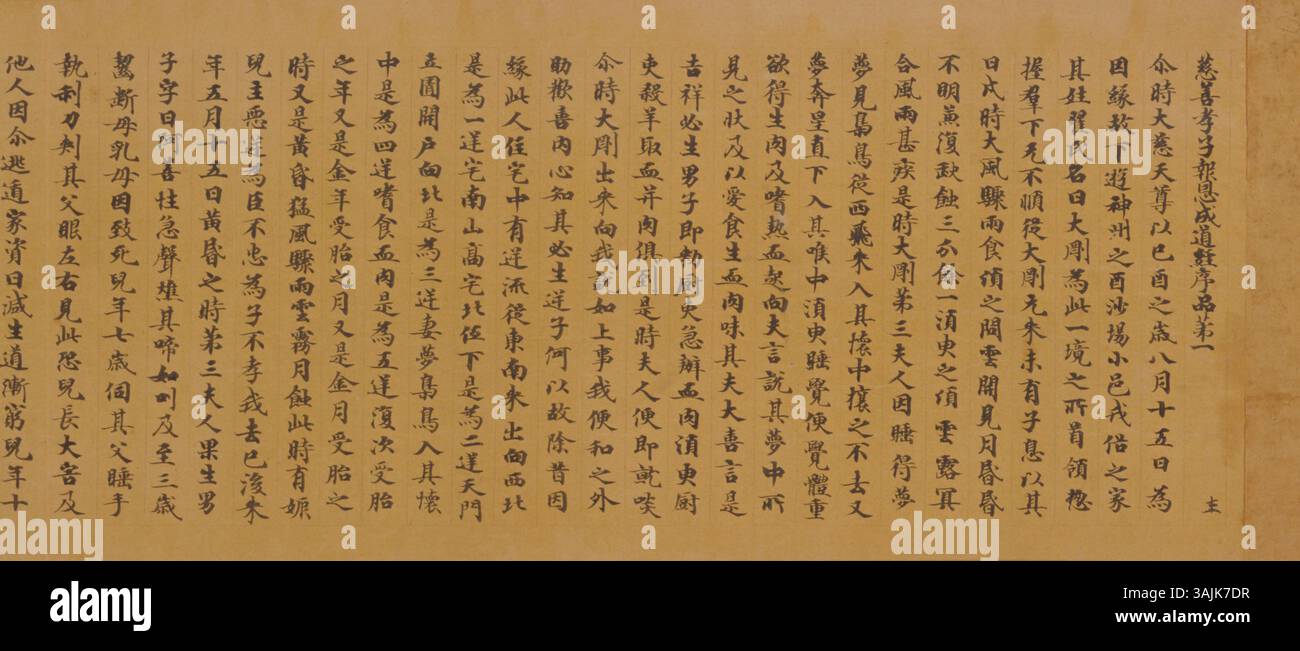 慈善孝子報恩成道經序品第一
圭
尒時大慈天尊以己酉之歲八月十五日為
因緣故下遊神州之酉沙場小邑戎俗之家
其姓 氏名曰大剛為此一境之所首領揔
握羣下无不順從大剛元來未有子息以其
日戌時大風驟雨食頃之間雲開見月昏昏
不明兼復缺蝕三分餘一須臾之頃雲露冥
合風雨甚疾是時大剛第三夫人因睡得夢
夢見梟鳥從西飛來入其懷中攘之不去又
夢奔星直下入其喉中須臾睡覺便覺體重
欲得生肉及嗜熱血起向夫言說其夢中所
見之狀及以愛食生血肉味其夫大喜言是
吉祥必生男子即勑厨吏急辦血肉須臾厨
吏殺羊取血并肉俱 是時夫人便即 啖
尒時大剛出來向我 如上事我便和之外
助歡喜內心知其必生逆子何以故除昔因
緣此人住宅中有逆流從東南來出向西北
是為一逆宅南山高宅北伍下是為二逆天門
立圊開戶向北是為三逆妻夢梟鳥入其懷
中是為四逆嗜食血肉是為五逆復次受胎
之年又是金年受胎之月又是金月受胎之
時又是黃昏猛風驟雨雲霧月蝕此時有娠
兒主惡逆為臣不忠為子不孝我去已後來
年五月十五日黃昏之時第三夫人果生男
子字曰阿 性急聲 其啼如叫及至三歲
齧斷母乳母因致死兒年七歲伺其父睡手
執利刀刺其父眼左右見此恐兒長大害及
他人因尒逃逝家資日減生道漸窮兒年十
alamy
Image ID: 3AJK7DR
www.alamy.com